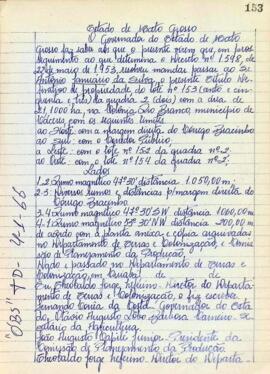 153
Estado de Mato Grosso
O Governador do Estado de Mato
Grosso faz saber aos que o presente virem que, em pros
seguimento ao que determina o Decreto nº 1.598, de
22 de maio de 1.953 resolveu mandar passar ao Sr.
Antonio Januário da Silva, o presente título de
finitivo de propriedade do lote nº 153 (cento e cin
coenta e três) da quadra 2 (dois) com a área de
21,1000 ha, na Colonia Rio Branco, município de
Cáceres com os seguintes limites
ao Norte: com a margem direita do Corrego Bracinho
ao Sul: com o
a Leste: com o lote nº 152 da quadra nº 2
ao Oeste: com o lote nº 154 da quadra nº 2
Lados
1.2 Rumo magnético distância 1.050,00 m:
2-3 Diversos rumos e distâncias p/margem direita do
Corrego Bracinho
3.4 Rumo magnético 44º30'SW distância 1060,00 m
4-1 Rumo magnético 53º30'NW distância 200,00 m
de acordo com a planta anexa, e cópia arquivadas
no Departamento de Terras e Colonização, e Comis
são de Planejamento da Produção.
Dado e passado no Departamento de Terras e
Colonização, em Cuiabá de de
Eu, Theobaldo Jorge Diretor do Departa
mento de Terras e Colonização, o fiz escrever
Fernando Corrêa da Costa. Governador do Esta
do, Secre
tário da Agricultura.
João Augusto Presidente da
Comissão de Planejamento da Produção
Theobaldo Jorge Diretor do Departa-
"OBS" TD- 4-1-66